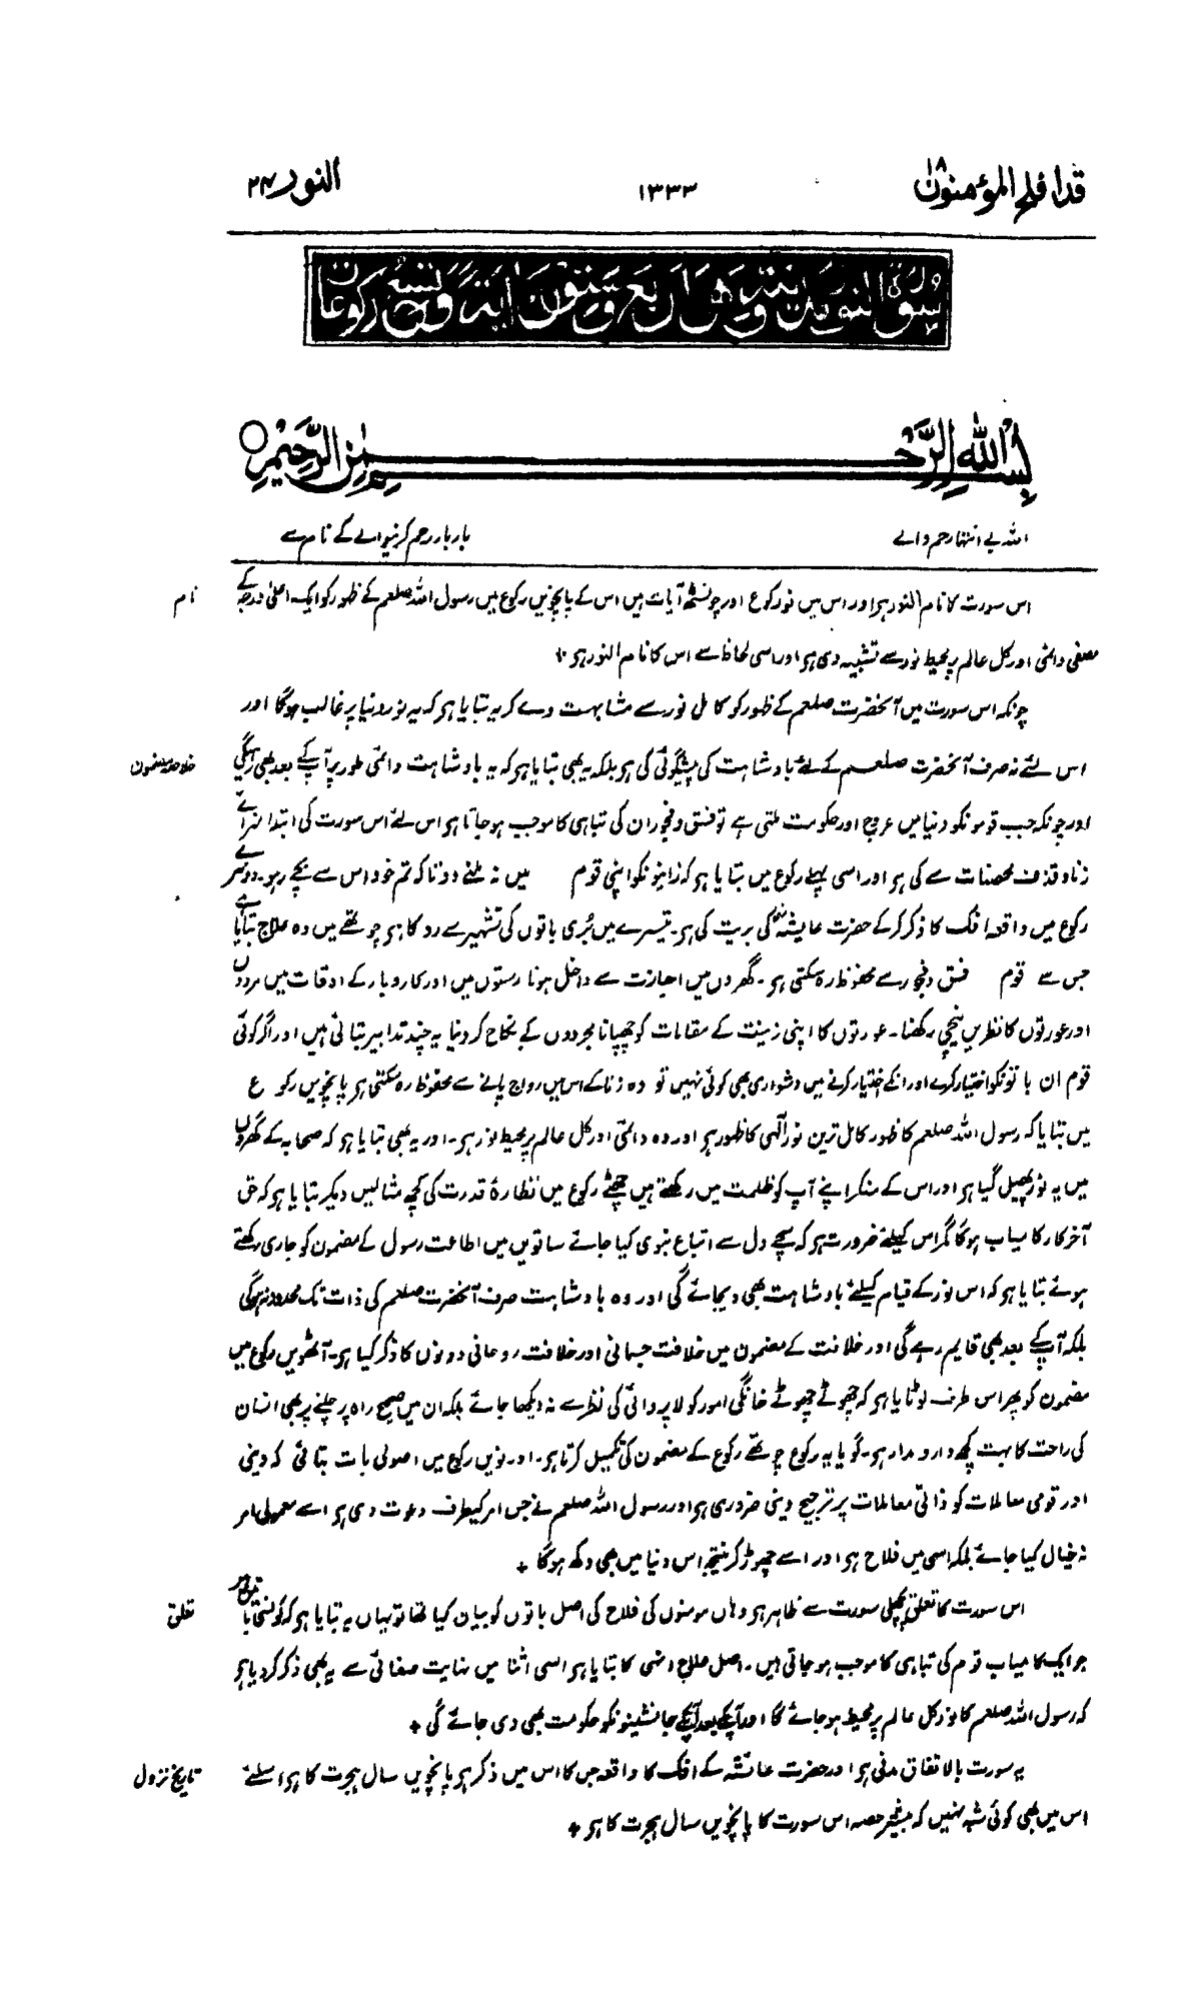 قد افلح المؤمنون ۱۸
۱۳۳۳
النور ۲۴
سورة النور مدنية وهي اربع وستون اية وتسع ركوعات
بسم الله الرحمن الرحيم
اللہ بے انتہا رحم والے
بار بار رحم کرنیوالے کے نام سے
نام
اس سورت کا نام النور ہے اور اس میں نو رکوع اور چونسٹھ آیات ہیں اس کے پانچویں رکوع میں رسول اللہ صلعم کے ظہور کو ایک اعلیٰ درجہ کے
مصفی دائمی اور کل عالم پر محیط نور سے تشبیہ دی ہے اور اسی لحاظ سے اس کا نام النور ہے +
چونکہ اس سورت میں آنحضرت صلعم کے ظہور کو کامل نور سے مشابہت دے کر یہ بتایا ہے کہ یہ نور دنیا پر غالب ہوگا اور
خلاصہ مضمون
اس لئے نہ صرف آنحضرت صلعم کے لئے بادشاہت کی پیشگوئی کی ہے بلکہ یہ بھی بتایا ہے کہ یہ بادشاہت دائمی طور پر آپ کے بعد بھی رہیگی
اور چونکہ جب قومونکو دنیا میں عروج اور حکومت ملتی ہے تو فسق و فجور ان کی تباہی کا موجب ہو جاتا ہے اس لئے اس سورت کی ابتدا سزائے
زنا و قذف محصنات سے کی ہے اور اسی پہلے رکوع میں بتایا ہے کہ زانیونکو اپنی قوم میں نہ ملنے دو تاکہ تم خود اس سے بچے رہو۔ دوسرے
رکوع میں واقعہ افک کا ذکر کرکے حضرت عایشہؓ کی بریت کی ہے۔ تیسرے میں بُری باتوں کی تشہیر سے روکا ہے چوتھے میں وہ علاج بتایا ہے
جس سے قوم فسق و فجور سے محفوظ رہ سکتی ہے۔ گھروں میں اجازت سے داخل ہونا رستوں میں اور کاروبار کے اوقات میں مردوں
اور عورتوں کا نظریں نیچی رکھنا۔ عورتوں کا اپنی زینت کے مقامات کو چھپانا مجردوں کے نکاح کر دینا یہ چند تدابیر بتائی ہیں اور اگر کوئی
قوم ان باتونکو اختیار کرے اور انکے اختیار کرنے میں دشواری بھی کوئی نہیں تو وہ زنا کے اس میں رواج پانے سے محفوظ رہ سکتی ہے پانچویں رکوع
میں بتایا کہ رسول اللہ صلعم کا ظہور کامل ترین نور الٰہی کا ظہور ہے اور وہ دائمی اور کل عالم پر محیط نور ہے۔ اور یہ بھی بتایا ہے کہ صحابہ کے گھروں
میں یہ نور پھیل گیا ہے اور اس کے منکر اپنے آپ کو ظلمت میں رکھتے ہیں چھٹے رکوع میں نظارۂ قدرت کی کچھ مثالیں دیکر بتایا ہے کہ حق
آخرکار کامیاب ہوگا مگر اس کیلئے ضرورت ہے کہ سچے دل سے اتباع نبوی کیا جائے ساتویں میں اطاعت رسول کے مضمون کو جاری رکھتے
ہوئے بتایا ہے کہ اس نور کے قیام کیلئے بادشاہت بھی دیجائے گی اور وہ بادشاہت صرف آنحضرت صلعم کی ذات تک محدود نہ ہوگی
بلکہ آپکے بعد بھی قایم رہے گی اور خلافت کے مضمون میں خلافت جسمانی اور خلافت روحانی دونوں کا ذکر کیا ہے۔ آٹھویں رکوع میں
مضمون کو پھر اس طرف لوٹایا ہے کہ چھوٹے چھوٹے خانگی امور کو لاپروائی کی نظر سے نہ دیکھا جائے بلکہ ان میں صحیح راہ پر چلنے پر بھی انسان
کی راحت کا بہت کچھ دارومدار ہے۔ گویا یہ رکوع چوتھے رکوع کے مضمون کی تکمیل کرتا ہے۔ اور نویں رکوع میں اصولی بات بتائی کہ دینی
اور قومی معاملات کو ذاتی معاملات پر ترجیح دینی ضروری ہے اور رسول اللہ صلعم نے جس امر کیطرف دعوت دی ہے اسے معمولی امر
نہ خیال کیا جائے بلکہ اسی میں فلاح ہے اور اسے چھوڑ کر نتیجہ اس دنیا میں بھی دکھ ہوگا +
تعلق
اس سورت کا تعلق پچھلی سورت سے ظاہر ہے وہاں مومنوں کی فلاح کی اصل باتوں کو بیان کیا تھا تو یہاں یہ بتایا ہے کہ کونسی باتیں ہیں
جو ایک کامیاب قوم کی تباہی کا موجب ہو جاتی ہیں۔ اصل علاج انہی کا بتایا ہے اسی اثنا میں نہایت صفائی سے یہ بھی ذکر کر دیا ہے
کہ رسول اللہ صلعم کا نور کل عالم پر محیط ہو جائے گا اور آپکے بعد آپکے جانشینونکو حکومت بھی دی جائے گی +
تاریخ نزول
یہ سورت بالاتفاق مدنی ہے اور حضرت عائشہ کے افک کا واقعہ جس کا اس میں ذکر ہے پانچویں سال ہجرت کا ہے اسلئے
اس میں بھی کوئی شبہ نہیں کہ بیشتر حصہ اس سورت کا پانچویں سال ہجرت کا ہے +